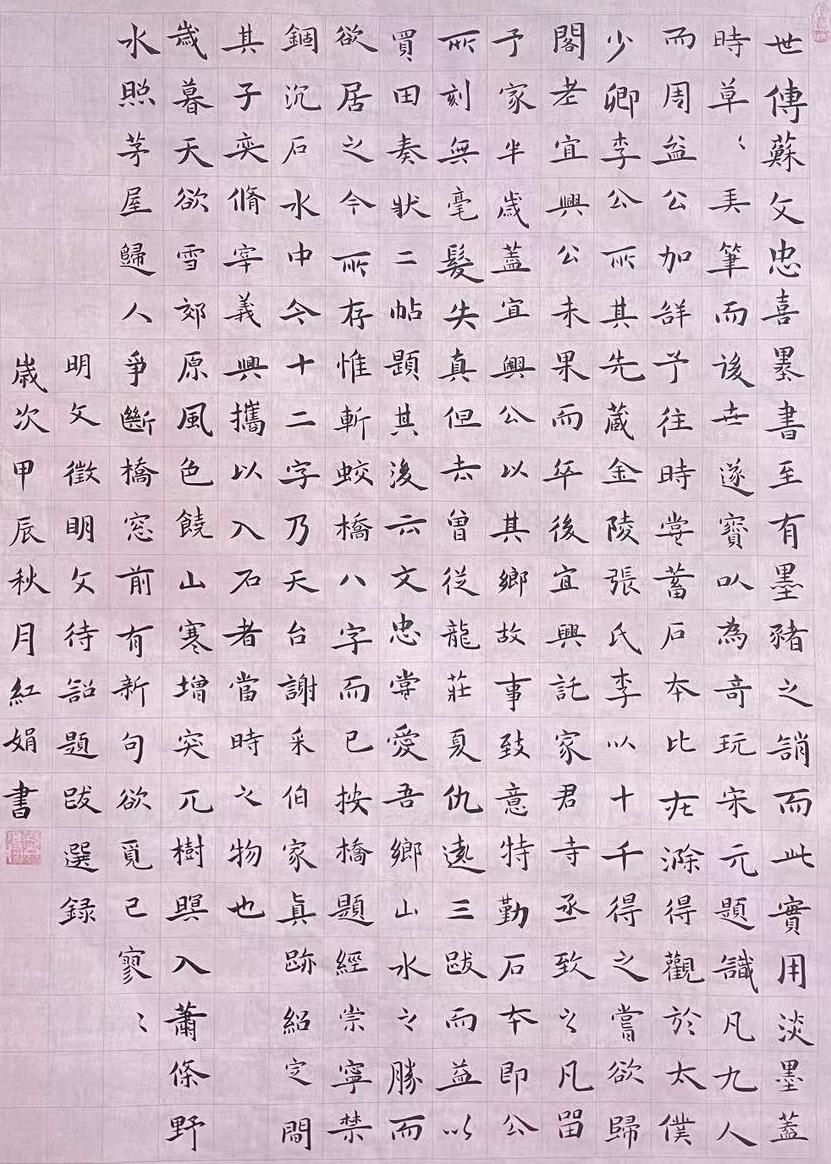 世傳蘇文忠喜墨書至有墨豬之誚而此實用淡墨蓋
時草〻弄筆而後世遂寶以為奇玩宋元題識凡九人
而周益公加詳予往時嘗蓄石本比在滁得觀於太僕
少卿李公所其先藏金陵張氏李以十千得之嘗欲歸
閣老宜興公未果而卒後宜興託家君寺丞致之凡留
予家半歲蓋宜興公以其鄉故事致意特勤石本即公
所刻無毫髮失真但去曾從龍莊夏仇遠三跋而益以
買田奏狀二帖題其後云文忠嘗愛吾鄉山水之勝而
欲居之今所存惟斬蛟橋八字而已按橋題經崇寧禁
錮沉石水中今十二字乃天台謝采伯家真跡紹定間
其子奕脩宰義興攜以入石者當時之物也
歲暮天欲雪郊原風色饒山寒增突兀樹暝入蕭條野
水照茅屋歸人爭斷橋窓前有新句欲覓已寥〻
明文徵明文待詔題跋選録
歲次甲辰秋月紅娟書